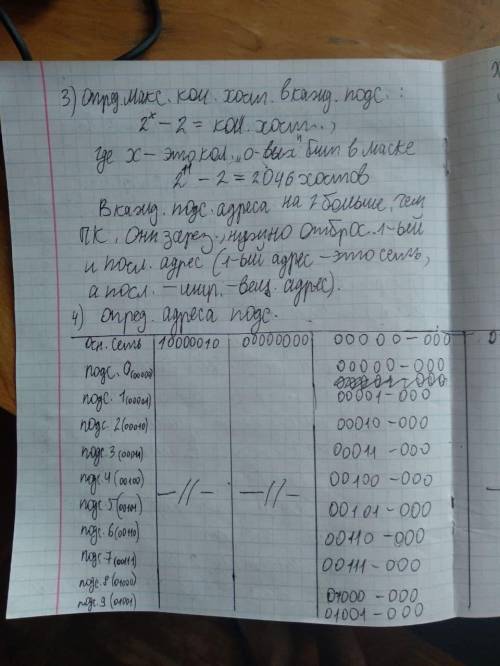 3) Опред. макс. кол. хост. в кажд. подс. :
2ˣ - 2 = кол. хост.,
где x - это кол. "0-вых" бит в маске
2¹¹ - 2 = 2046 хостов
В кажд. подс. адреса на 2 больше, чем
ПК. Они зарез., нужно отброс. 1-ый
и посл. адрес (1-ый адрес - это сеть,
а посл. - шир.-вещ. адрес).
4) Опред. адреса подс.
Осн. сеть 10000010 00000000 00000-000
подс. 0 (00000) 00000-000
подс. 1 (00001) 00001-000
подс. 2 (00010) 00010-000
подс. 3 (00011) 00011-000
подс. 4 (00100) 00100-000
-//- -//-
подс. 5 (00101) 00101-000
подс. 6 (00110) 00110-000
подс. 7 (00111) 00111-000
подс. 8 (01000) 01000-000
подс. 9 (01001) 01001-000